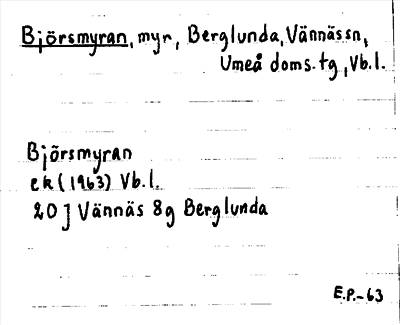 Björsmyran, myr, Berglunda, Vännässn,
Umeå doms.tg, Vb.l.
Björsmyran
ek (1963) Vb.l.
20 J Vännäs 8g Berglunda
E.P.-63